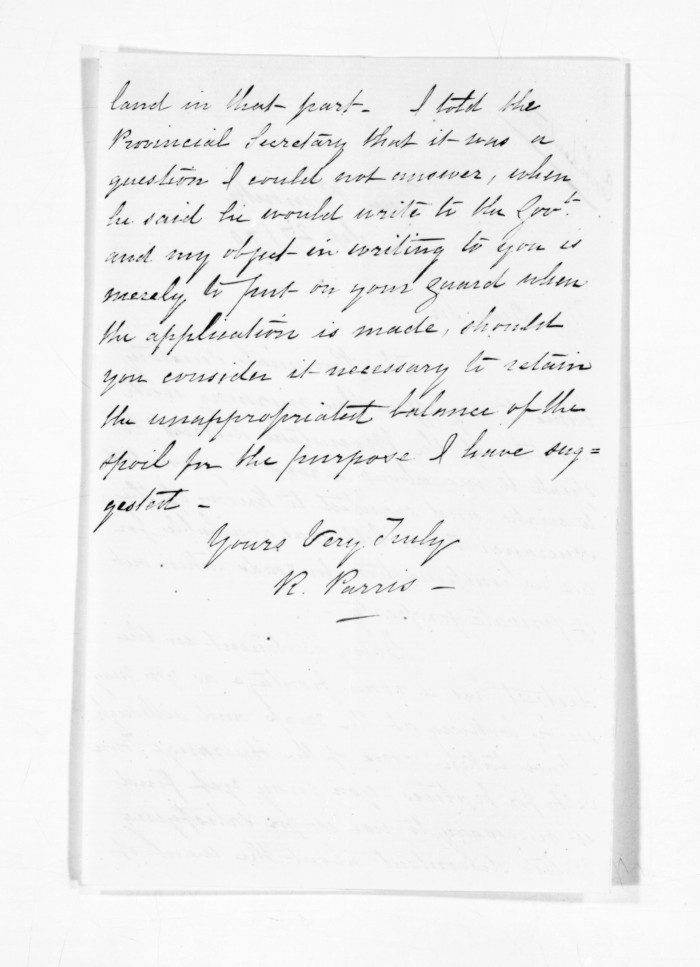 land in that part - I told the
Provincial Secretary that it was a
question I could not answer, when
he said he would write to the Govt.
and my object in writing to you is
merely to put on your guard when
the application is made, should
you consider it necessary to retain
the unappropriated balance of the
spoil for the purpose I have sug=
gested -
Yours Very Truly
R. Parris -